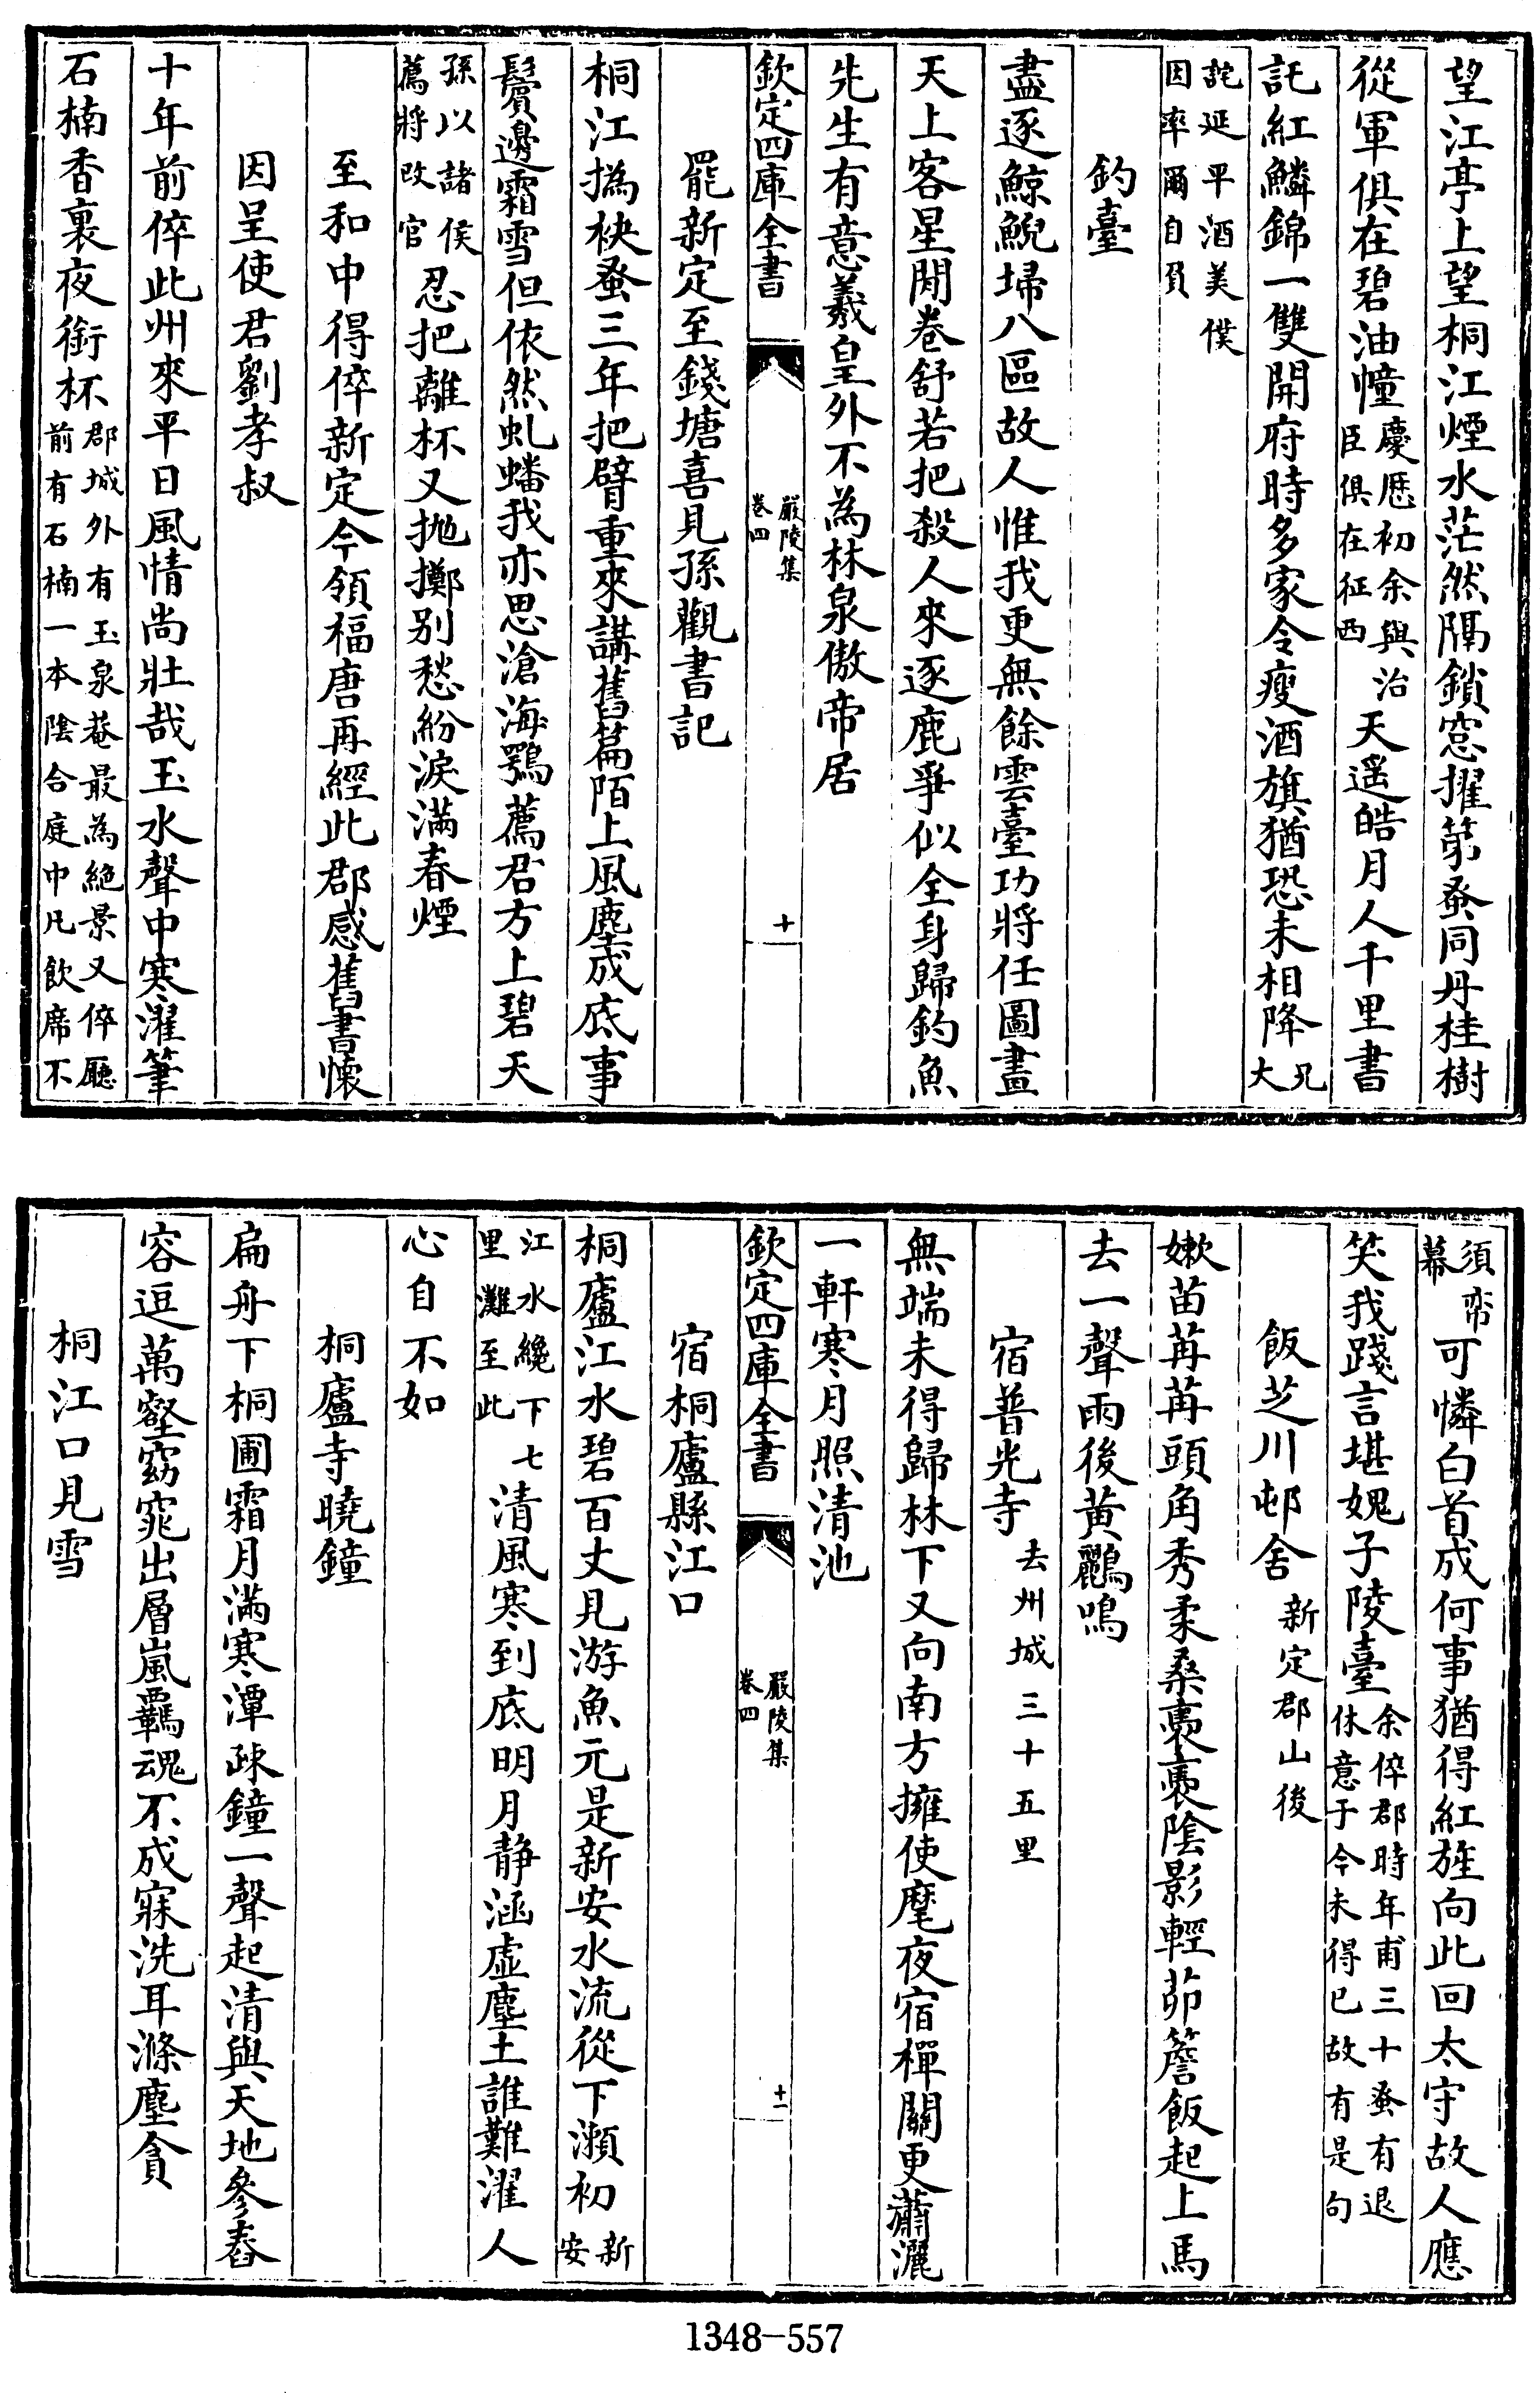 望江亭上望桐江煙水茫然隔鎖窓擢第蚤同丹桂樹
從軍俱在碧油幢慶厯初余與治臣俱在征西天遥皓月人千里書
託紅鱗錦一雙開府時多家令瘦酒旗猶恐未相降兄大
詫延平酒美僕因率爾自負
釣臺
盡逐鯨鯢埽八區故人惟我更無餘雲臺功將任圖畫
天上客星閒卷舒若把殺人來逐鹿爭似全身歸釣魚
先生有意羲皇外不為林泉傲帝居
欽定四庫全書
嚴陵集
卷四
十
罷新定至錢塘喜見孫觀書記
桐江撝袂蚤三年把臂重來講舊篇陌上風塵成底事
鬢邊霜雪但依然虬蟠我亦思滄海鶚薦君方上碧天
孫以諸侯薦將改官忍把離杯又抛擲别愁紛淚滿春煙
至和中得倅新定今領福唐再經此郡感舊書懷
因呈使君劉孝叔
十年前倅此州來平日風情尚壯哉玉水聲中寒濯筆
石楠香裏夜銜杯郡城外有玉泉菴最為絶景又倅廳前有石楠一本陰合庭中凡飲席不
須帟幕可憐白首成何事猶得紅旌向此回太守故人應
笑我踐言堪媿子陵臺余倅郡時年甫三十蚤有退休意于今未得已故有是句
飯芝川邨舍新定郡山後
嫩苗苒苒頭角秀柔桑裊裊陰影輕茆簷飯起上馬
去一聲雨後黄鸝鳴
宿普光寺去州城三十五里
無端未得歸林下又向南方擁使麾夜宿禪關更蕭灑
一軒寒月照清池
欽定四庫全書
嚴陵集
卷四
十一
宿桐廬縣江口
桐廬江水碧百丈見游魚元是新安水流從下瀨初新安
江水纔下七里灘至此清風寒到底明月静涵虚塵土誰難濯人
心自不如
桐廬寺曉鐘
扁舟下桐圃霜月滿寒潭疎鐘一聲起清與天地參舂
容逗萬壑窈窕出層嵐羈魂不成寐洗耳滌塵貪
桐江口見雪
1348-557